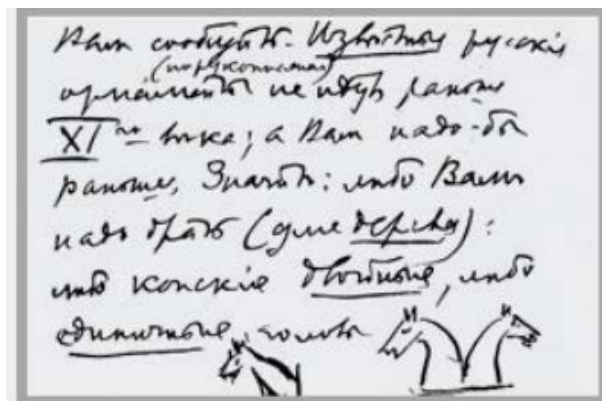 Вамъ сообщить. Извѣстные русскіе
(по рукописямъ)
орнаменты не идутъ раньше
XI–го вѣка; а Вамъ надо-бы
раньше. Значитъ: либо Вамъ
надо брать (для дерева):
либо конскія двойныя, либо
единичныя головы